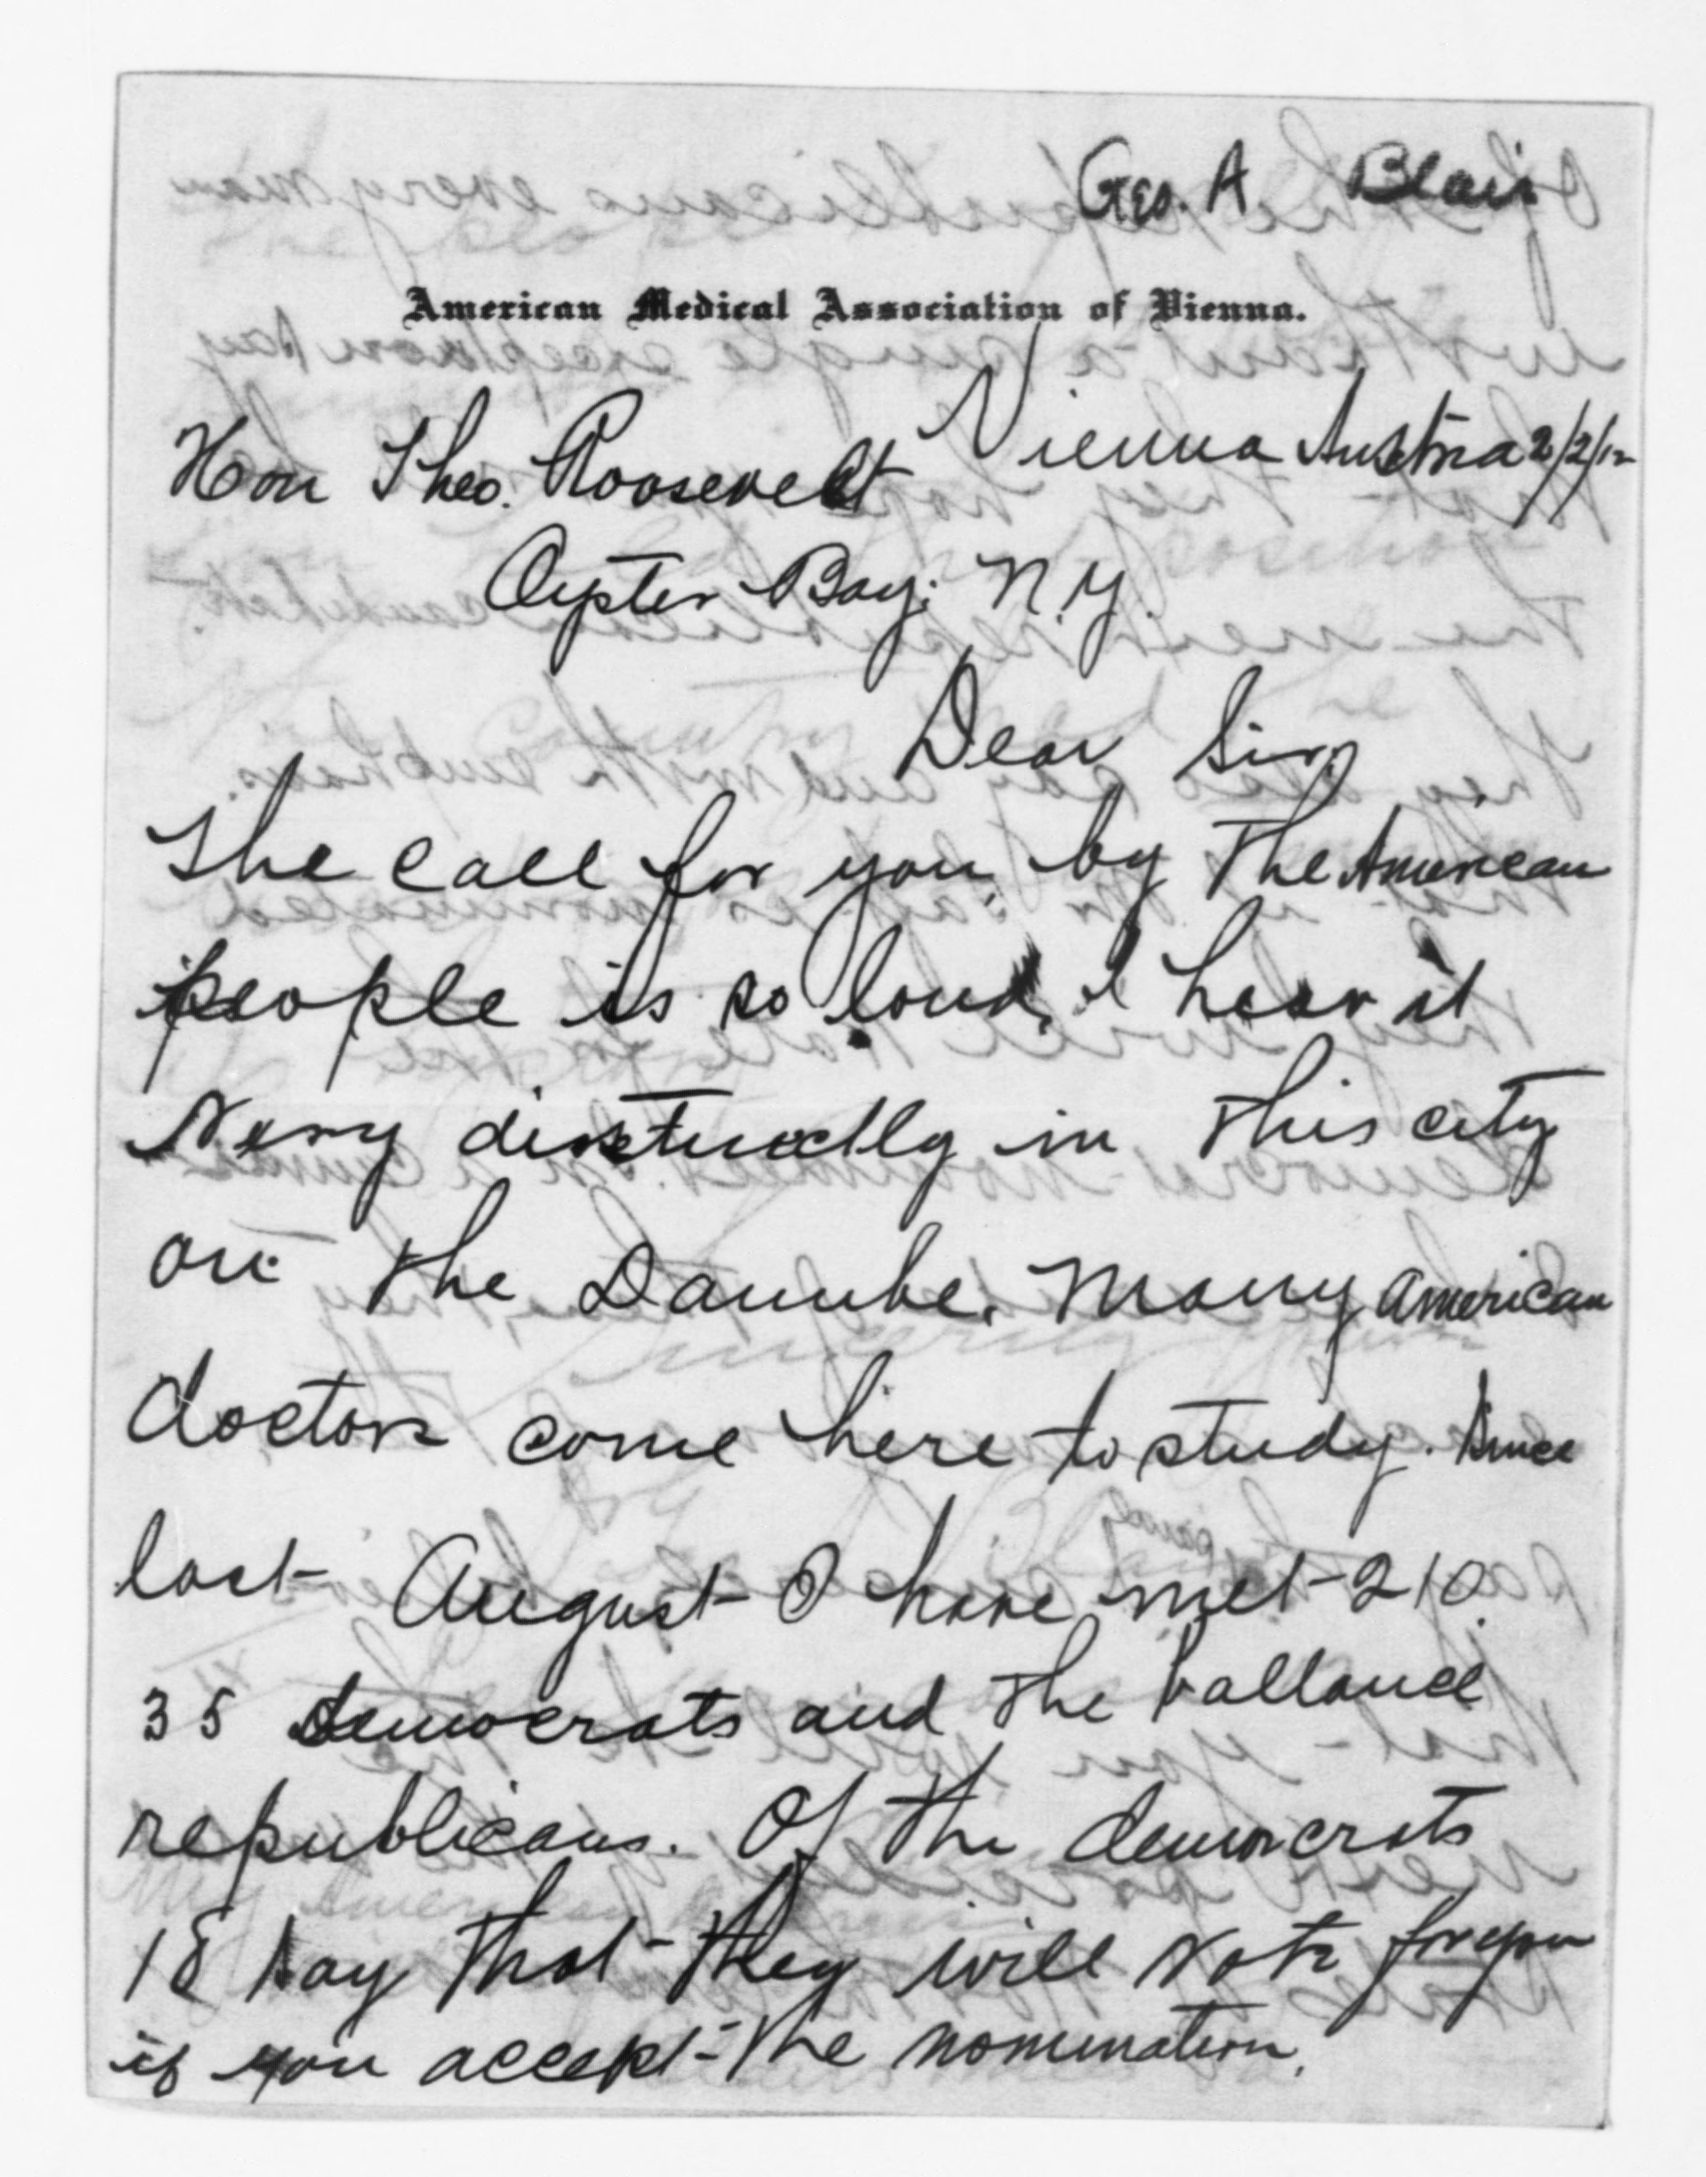 Geo. A. Blair
American Medical Association of Vienna.
Vienna Austria 2/2/12
Hon Theo. Roosevelt
Oyster Bay; N.Y.
Dear Sir,
The call for you, by the American
people is so loud, I hear it
very distinctly in this city
on the Danube. Many American
doctors come here to study. Since
last August I have met 210.
35 democrats and the ballance
republicans. Of the democrats
18 say that they will vote for you
if you accept the nomination.